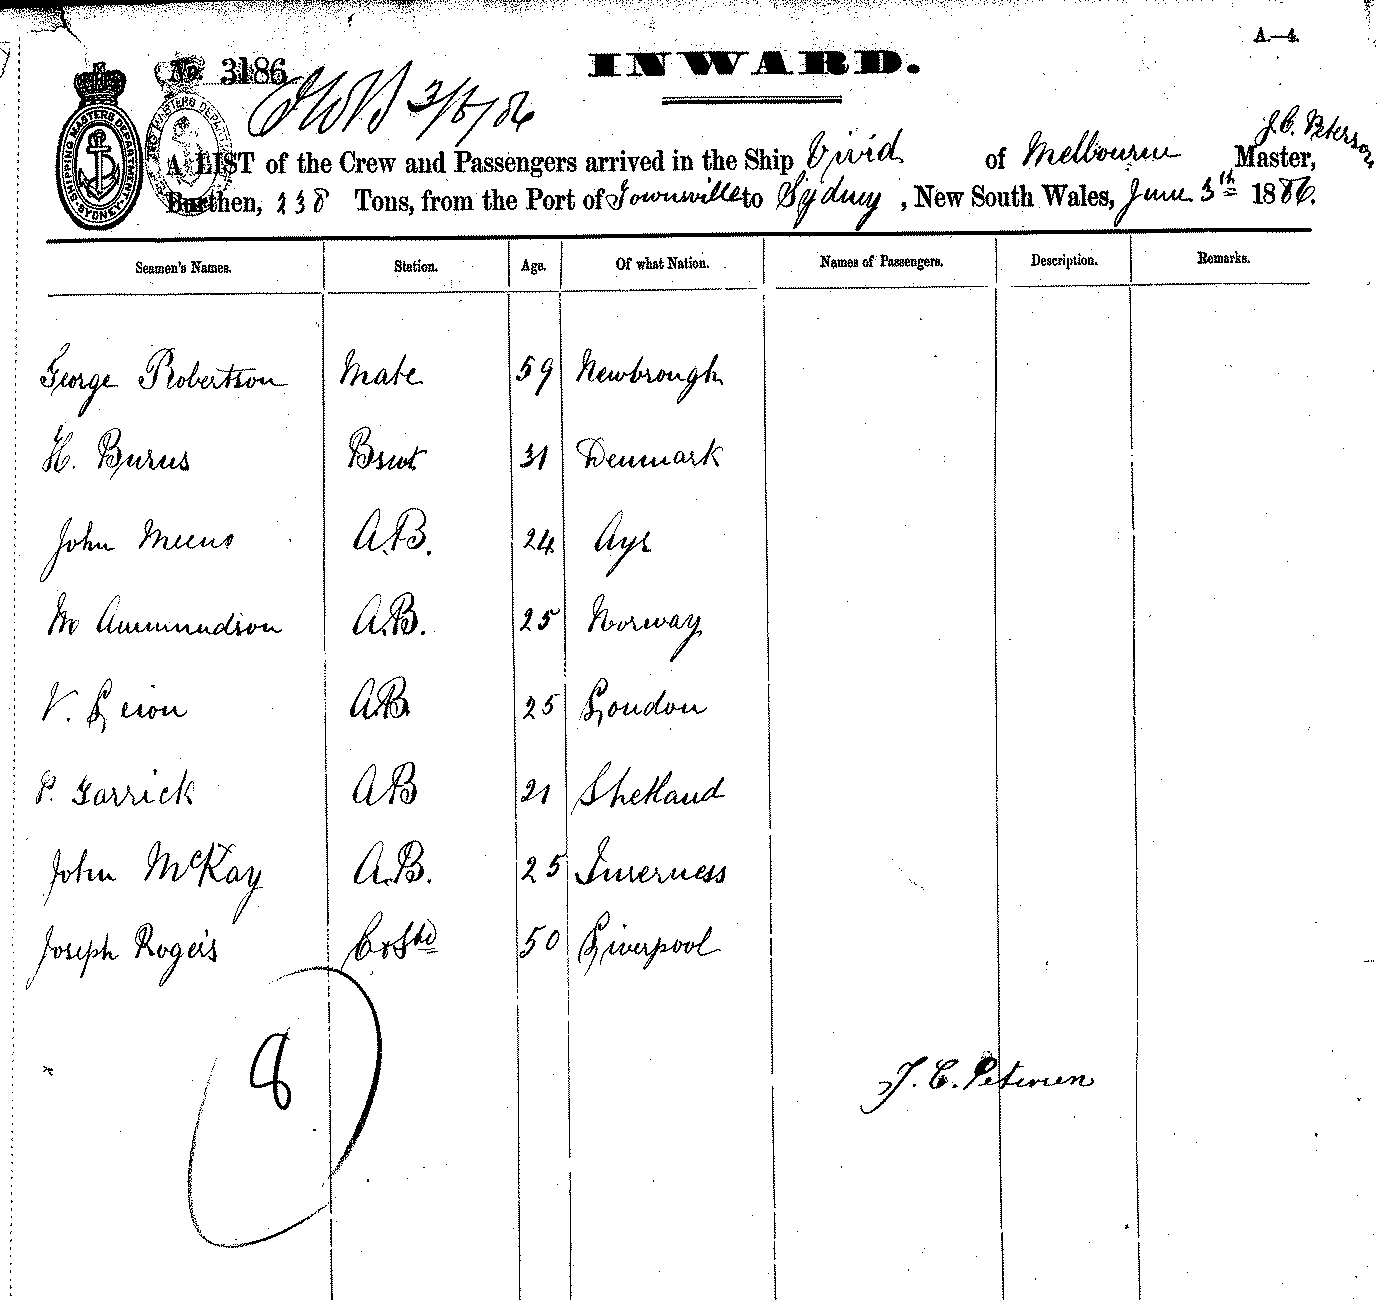 A.—4.
No. 3186
INWARD.
3/6/86
J. C. Peterson
A LIST of the Crew and Passengers arrived in the Ship Vivid of Melbourne Master,
Burthen, 238 Tons, from the Port of Townsville to Sydney, New South Wales, June 3th 1886.
SHIPPING MASTERS DEPARTMENT SYDNEY
Seamen's Names. Station. Age. Of what Nation. Names of Passengers. Description. Remarks.
George Robertson Mate 59 Newbrough
H. Burus Bswt 31 Denmark
John A.B. 24 Ayr
A.B. 25 Norway
V. AB 25 London
P. Garrick AB 21 Shetland
John McKay A.B. 25 Inverness
Joseph Rogers 50 Liverpool
8
J. C. Petersen